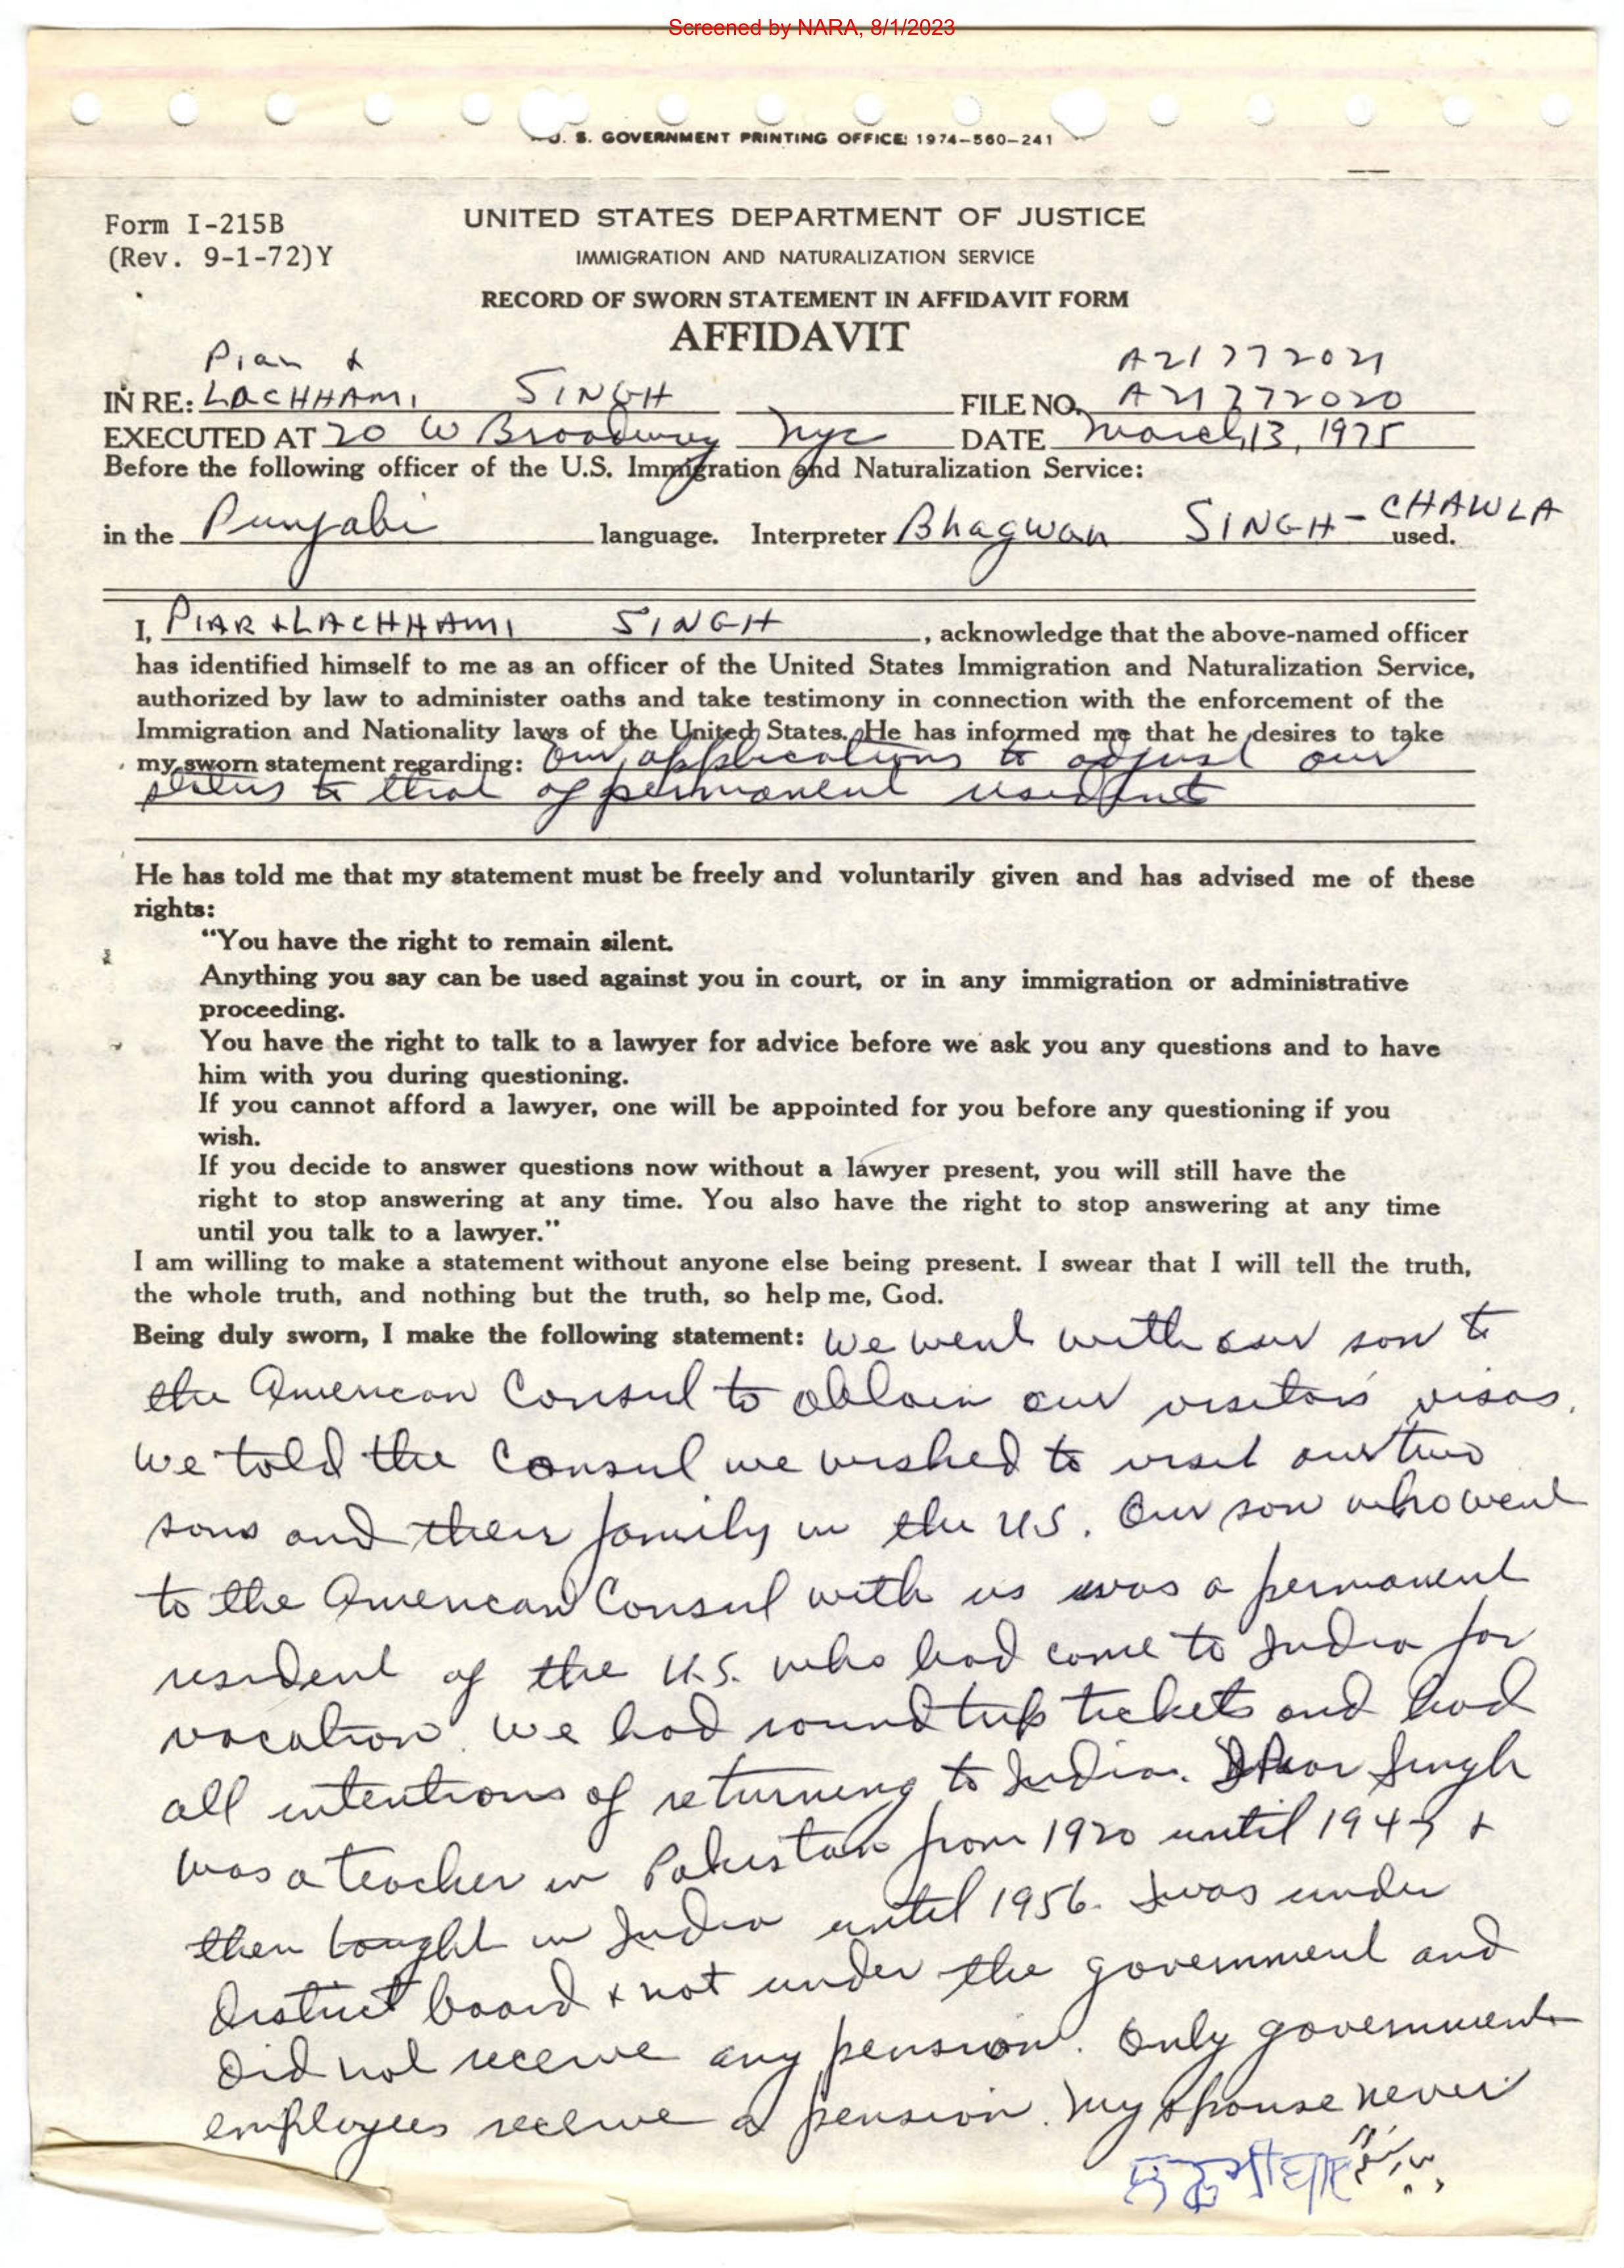 Screened by NARA, 8/1/2023
U. S. GOVERNMENT PRINTING OFFICE: 1974-560-241
Form I-215B
(Rev. 9-1-72)Y
UNITED STATES DEPARTMENT OF JUSTICE
IMMIGRATION AND NATURALIZATION SERVICE
RECORD OF SWORN STATEMENT IN AFFIDAVIT FORM
AFFIDAVIT
Piar & A21772021
IN RE: LACHHAMI SINGH FILE NO. A21772020
EXECUTED AT 20 W Broadway NYC DATE March 13, 1975
Before the following officer of the U.S. Immigration and Naturalization Service:
in the Punjabi language. Interpreter Bhagwan SINGH-CHAWLA used.
I, PIAR & LACHHAMI SINGH, acknowledge that the above-named officer
has identified himself to me as an officer of the United States Immigration and Naturalization Service,
authorized by law to administer oaths and take testimony in connection with the enforcement of the
Immigration and Nationality laws of the United States. He has informed me that he desires to take
my sworn statement regarding: Our applications to adjust our
status to that of permanent residents
He has told me that my statement must be freely and voluntarily given and has advised me of these
rights:
"You have the right to remain silent.
Anything you say can be used against you in court, or in any immigration or administrative
proceeding.
You have the right to talk to a lawyer for advice before we ask you any questions and to have
him with you during questioning.
If you cannot afford a lawyer, one will be appointed for you before any questioning if you
wish.
If you decide to answer questions now without a lawyer present, you will still have the
right to stop answering at any time. You also have the right to stop answering at any time
until you talk to a lawyer."
I am willing to make a statement without anyone else being present. I swear that I will tell the truth,
the whole truth, and nothing but the truth, so help me, God.
Being duly sworn, I make the following statement: We went with our son to
the American Consul to obtain our visitors visas.
We told the Consul we wished to visit our two
sons and their family in the U.S. Our son who went
to the American Consul with us was a permanent
resident of the U.S. who had come to India for
vacation. We had round trip tickets and had
all intentions of returning to India. I Piar Singh
was a teacher in Pakistan from 1920 until 1947 &
then taught in India until 1956. I was under
District board & not under the government and
did not receive any pension. Only government
employees receive a pension. My spouse never